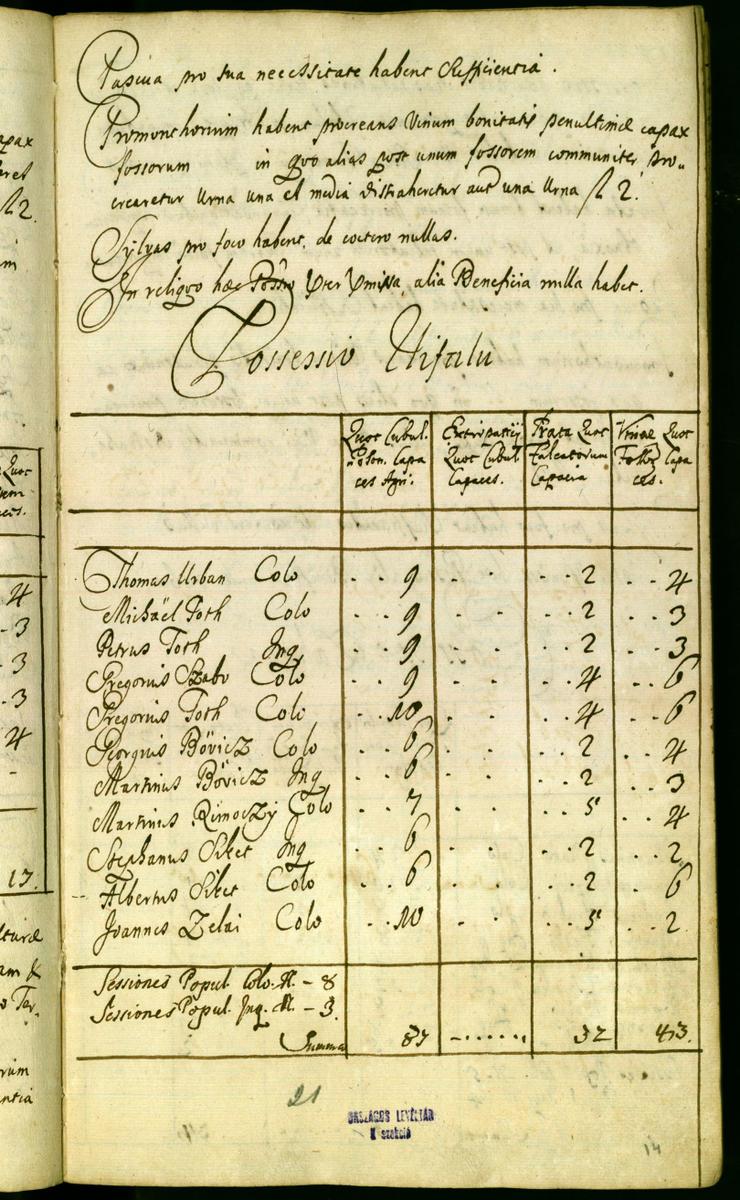 Pascua pro sua necessitate habent sufficientia.
Promonthorium habent procreans Vinum bonitatis penultimæ capax
fossorum in quo alias post unum fossorem communiter pro„
crearetur Urna una et media distraheretur aut una Urna fl 2.
Sylvas pro foco habent, de cœtero nullas.
In reliquo hæc Possio præter præmissa, alia Beneficia nulla habet.
Possessio Uifalu
Quot Cubul. Extirpatiÿ Prata Quot Vineæ Quot
Poson. Capa Quot Cubul Falcatorum Foss. Capa
ces Agri. Capaces. Capacia ces.
Thomas Urban Colo . . 9 . . . . 2 . . 4
Michaël Toth Colo . . 9 . . . . 2 . . 3
Petrus Toth Inq . . 9 . . . . 2 . . 3
Gregorius Szabo Colo . . 9 . . . . 4 . . 6
Gregorius Toth Colo . . 10 . . . . 4 . . 6
Georgius Bövicz Colo . . 6 . . . . 2 . . 4
Martinus Bövicz Inq . . 6 . . . . 2 . . 3
Martinus Rimoczÿ Colo . . 7 . . . . 5 . . 4
Stephanus Siket Inq . . 6 . . . . 2 . . 2
Albertus Siket Colo . . 6 . . . . 2 . . 6
Joannes Zelai Colo . . 10 . . . . 5 . . 2
Sessiones Popul. Colo. N. – 8
Sessiones Popul. Inq. N. – 3.
Summa 87 ........ 32 43.
21
ORSZÁGOS LEVÉLTÁR
K szekció
14